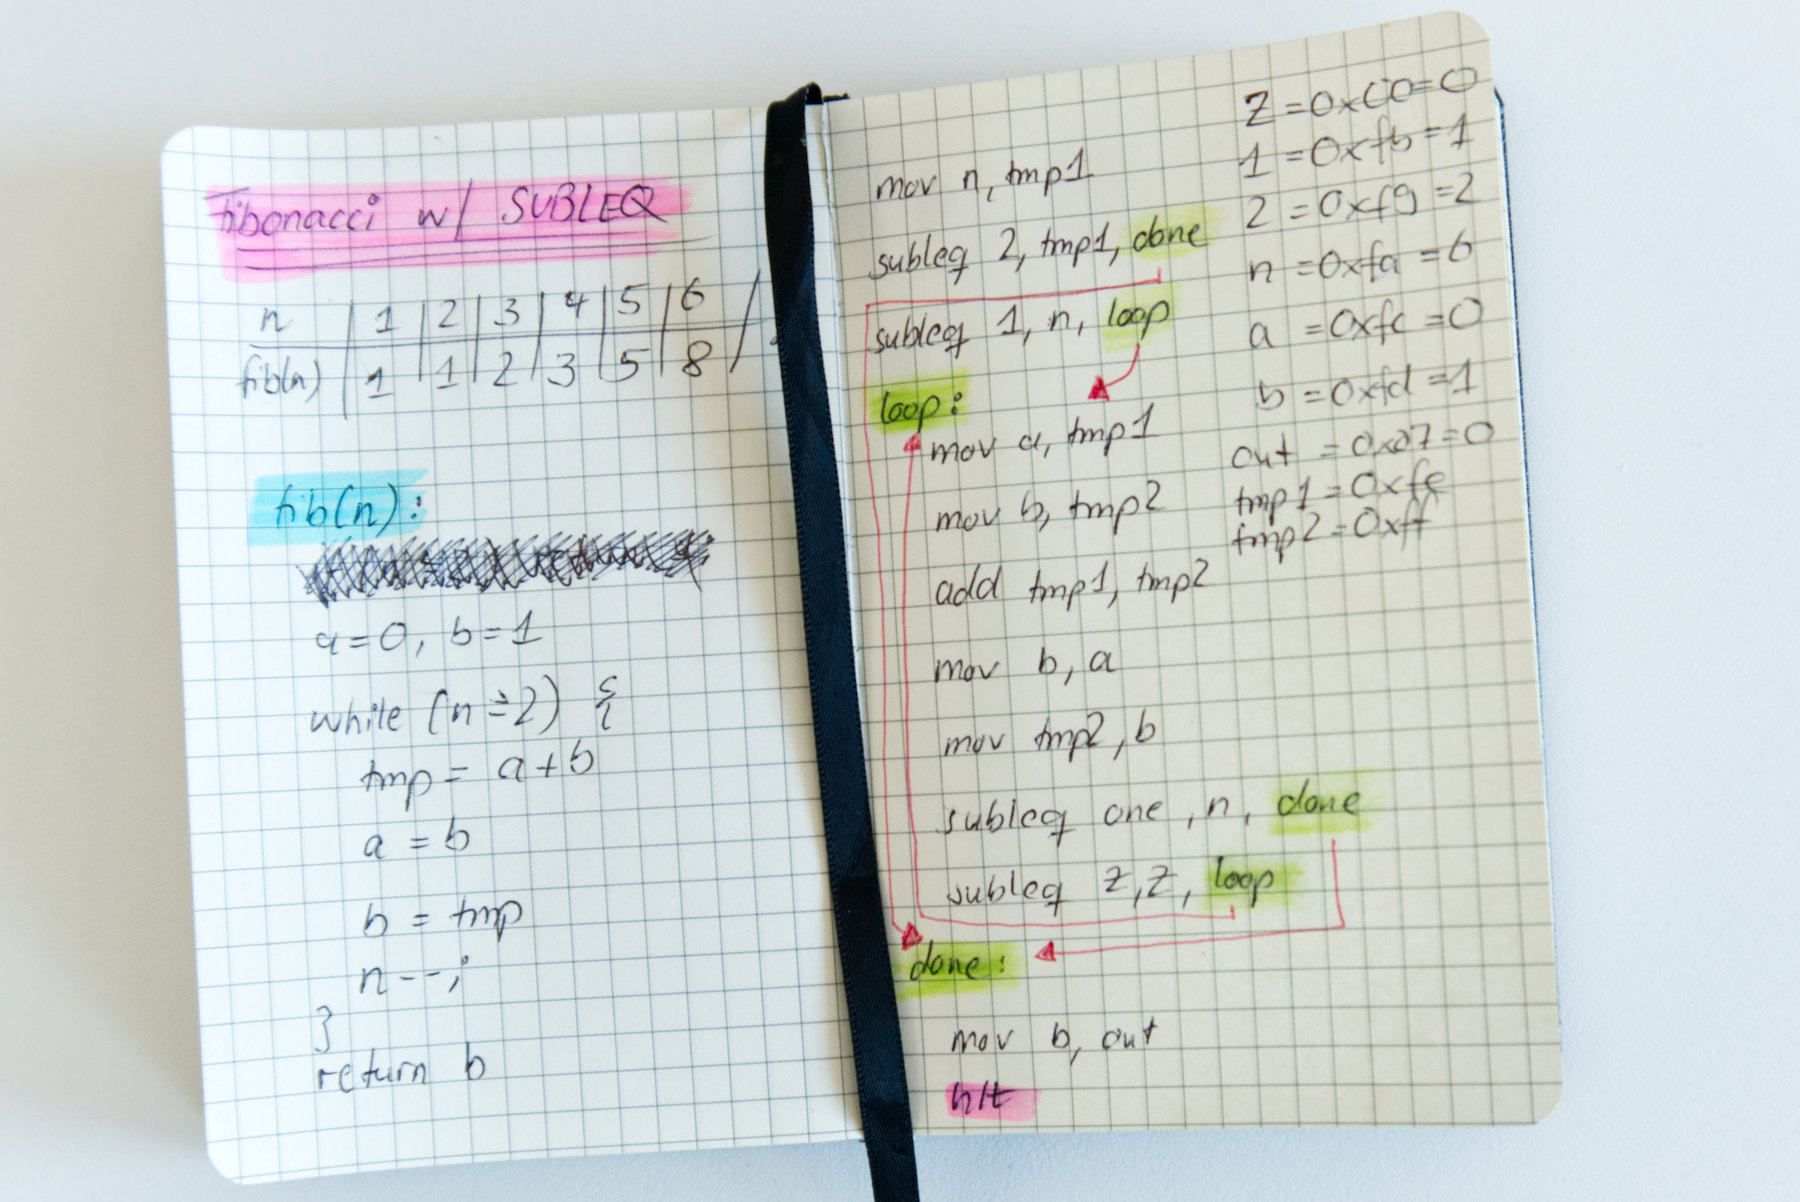 fibonacci w/ SUBLEQ
n | 1 | 2 | 3 | 4 | 5 | 6 /
fib(n) | 1 | 1 | 2 | 3 | 5 | 8 /
fib(n):
a=0, b=1
while (n ≥ 2) {
tmp = a+b
a = b
b = tmp
n--;
}
return b
mov n, tmp1
subleq 2, tmp1, done
subleq 1, n, loop
loop:
mov a, tmp1
mov b, tmp2
add tmp1, tmp2
mov b, a
mov tmp2, b
subleq one, n, done
subleq Z, Z, loop
done:
mov b, out
hlt
Z = 0x00 = 0
1 = 0xfb = 1
2 = 0xf9 = 2
n = 0xfa = 6
a = 0xfc = 0
b = 0xfd = 1
out = 0x07 = 0
tmp1 = 0xfe
tmp2 = 0xff